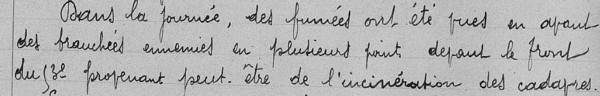 Dans la journée, des fumées ont été vues en avant
des tranchées ennemies en plusieurs points devant le front
du 3e provenant peut-être de l'incinération des cadavres.